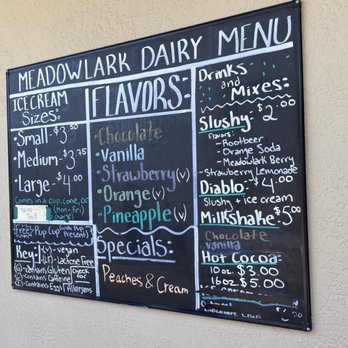 MEADOWLARK DAIRY MENU
ICE CREAM
Sizes:
-Small-$3.50
-Medium-$3.75
-Large-$4.00
Comes in a cup, cone, or
(Mon-Fri)
free Pup Cup (with Pup
Present)
Key: (v)- vegan
- Lactose Free
(G)-contains Gluten
(C)-contains Caffeine
(E)-contains Eggs
check for
Allergens
FLAVORS:
-Chocolate
-Vanilla
-Strawberry(v)
-Orange(v)
-Pineapple(v)
Specials:
Peaches & Cream
Drinks
and
Mixes:
Slushy-$2.00
Flavors:
- Rootbeer
- Orange Soda
- Meadowlark Berry
-Strawberry Lemonade
Diablo-$4.00
Slushy + ice cream
Milkshake-$5.00
Chocolate
vanilla
Hot Cocoa:
10oz $3.00
16oz $5.00